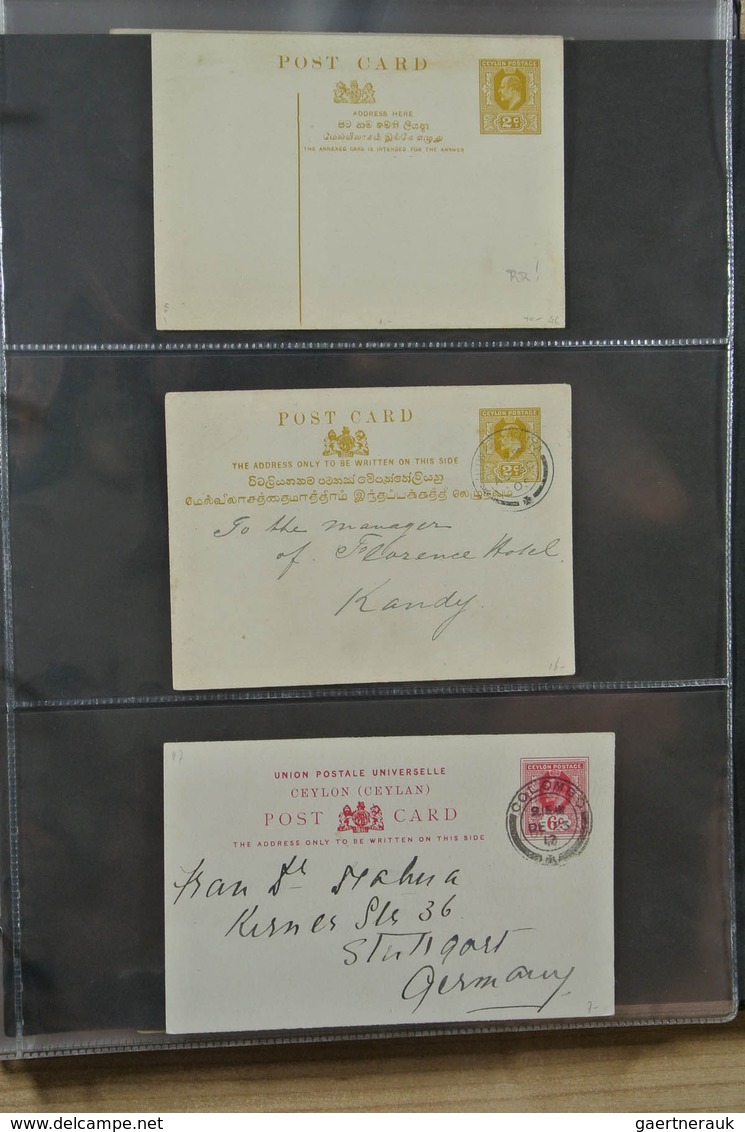 POST CARD
CEYLON POSTAGE
ADDRESS HERE
මේල්
மேல்விலாசம் இங்கே எழுது
THE ANNEXED CARD IS INTENDED FOR THE ANSWER
2c
RR!
POST CARD
CEYLON POSTAGE
THE ADDRESS ONLY TO BE WRITTEN ON THIS SIDE
2c
To the manager
of Florence Hotel.
Kandy.
16-
97
UNION POSTALE UNIVERSELLE
CEYLON (CEYLAN)
POST CARD
THE ADDRESS ONLY TO BE WRITTEN ON THIS SIDE
CEYLON POSTAGE
6c
COLOMBO
DE 23
Frau Dr
Kerner Str 36
Stuttgart
Germany
7-
gaertnerauk